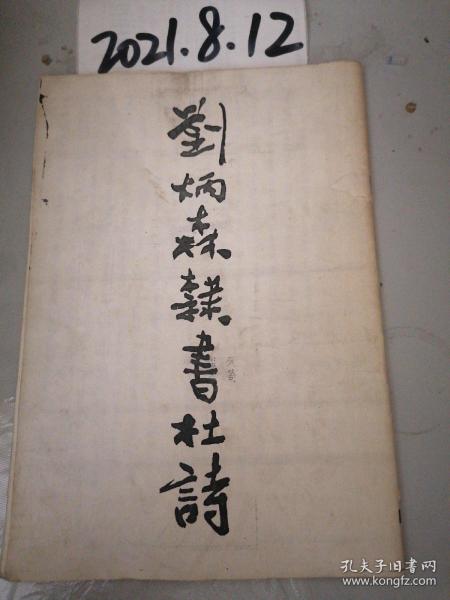 2021.8.12
劉炳森隸書杜詩
孔夫子旧书网
www.kongfz.com